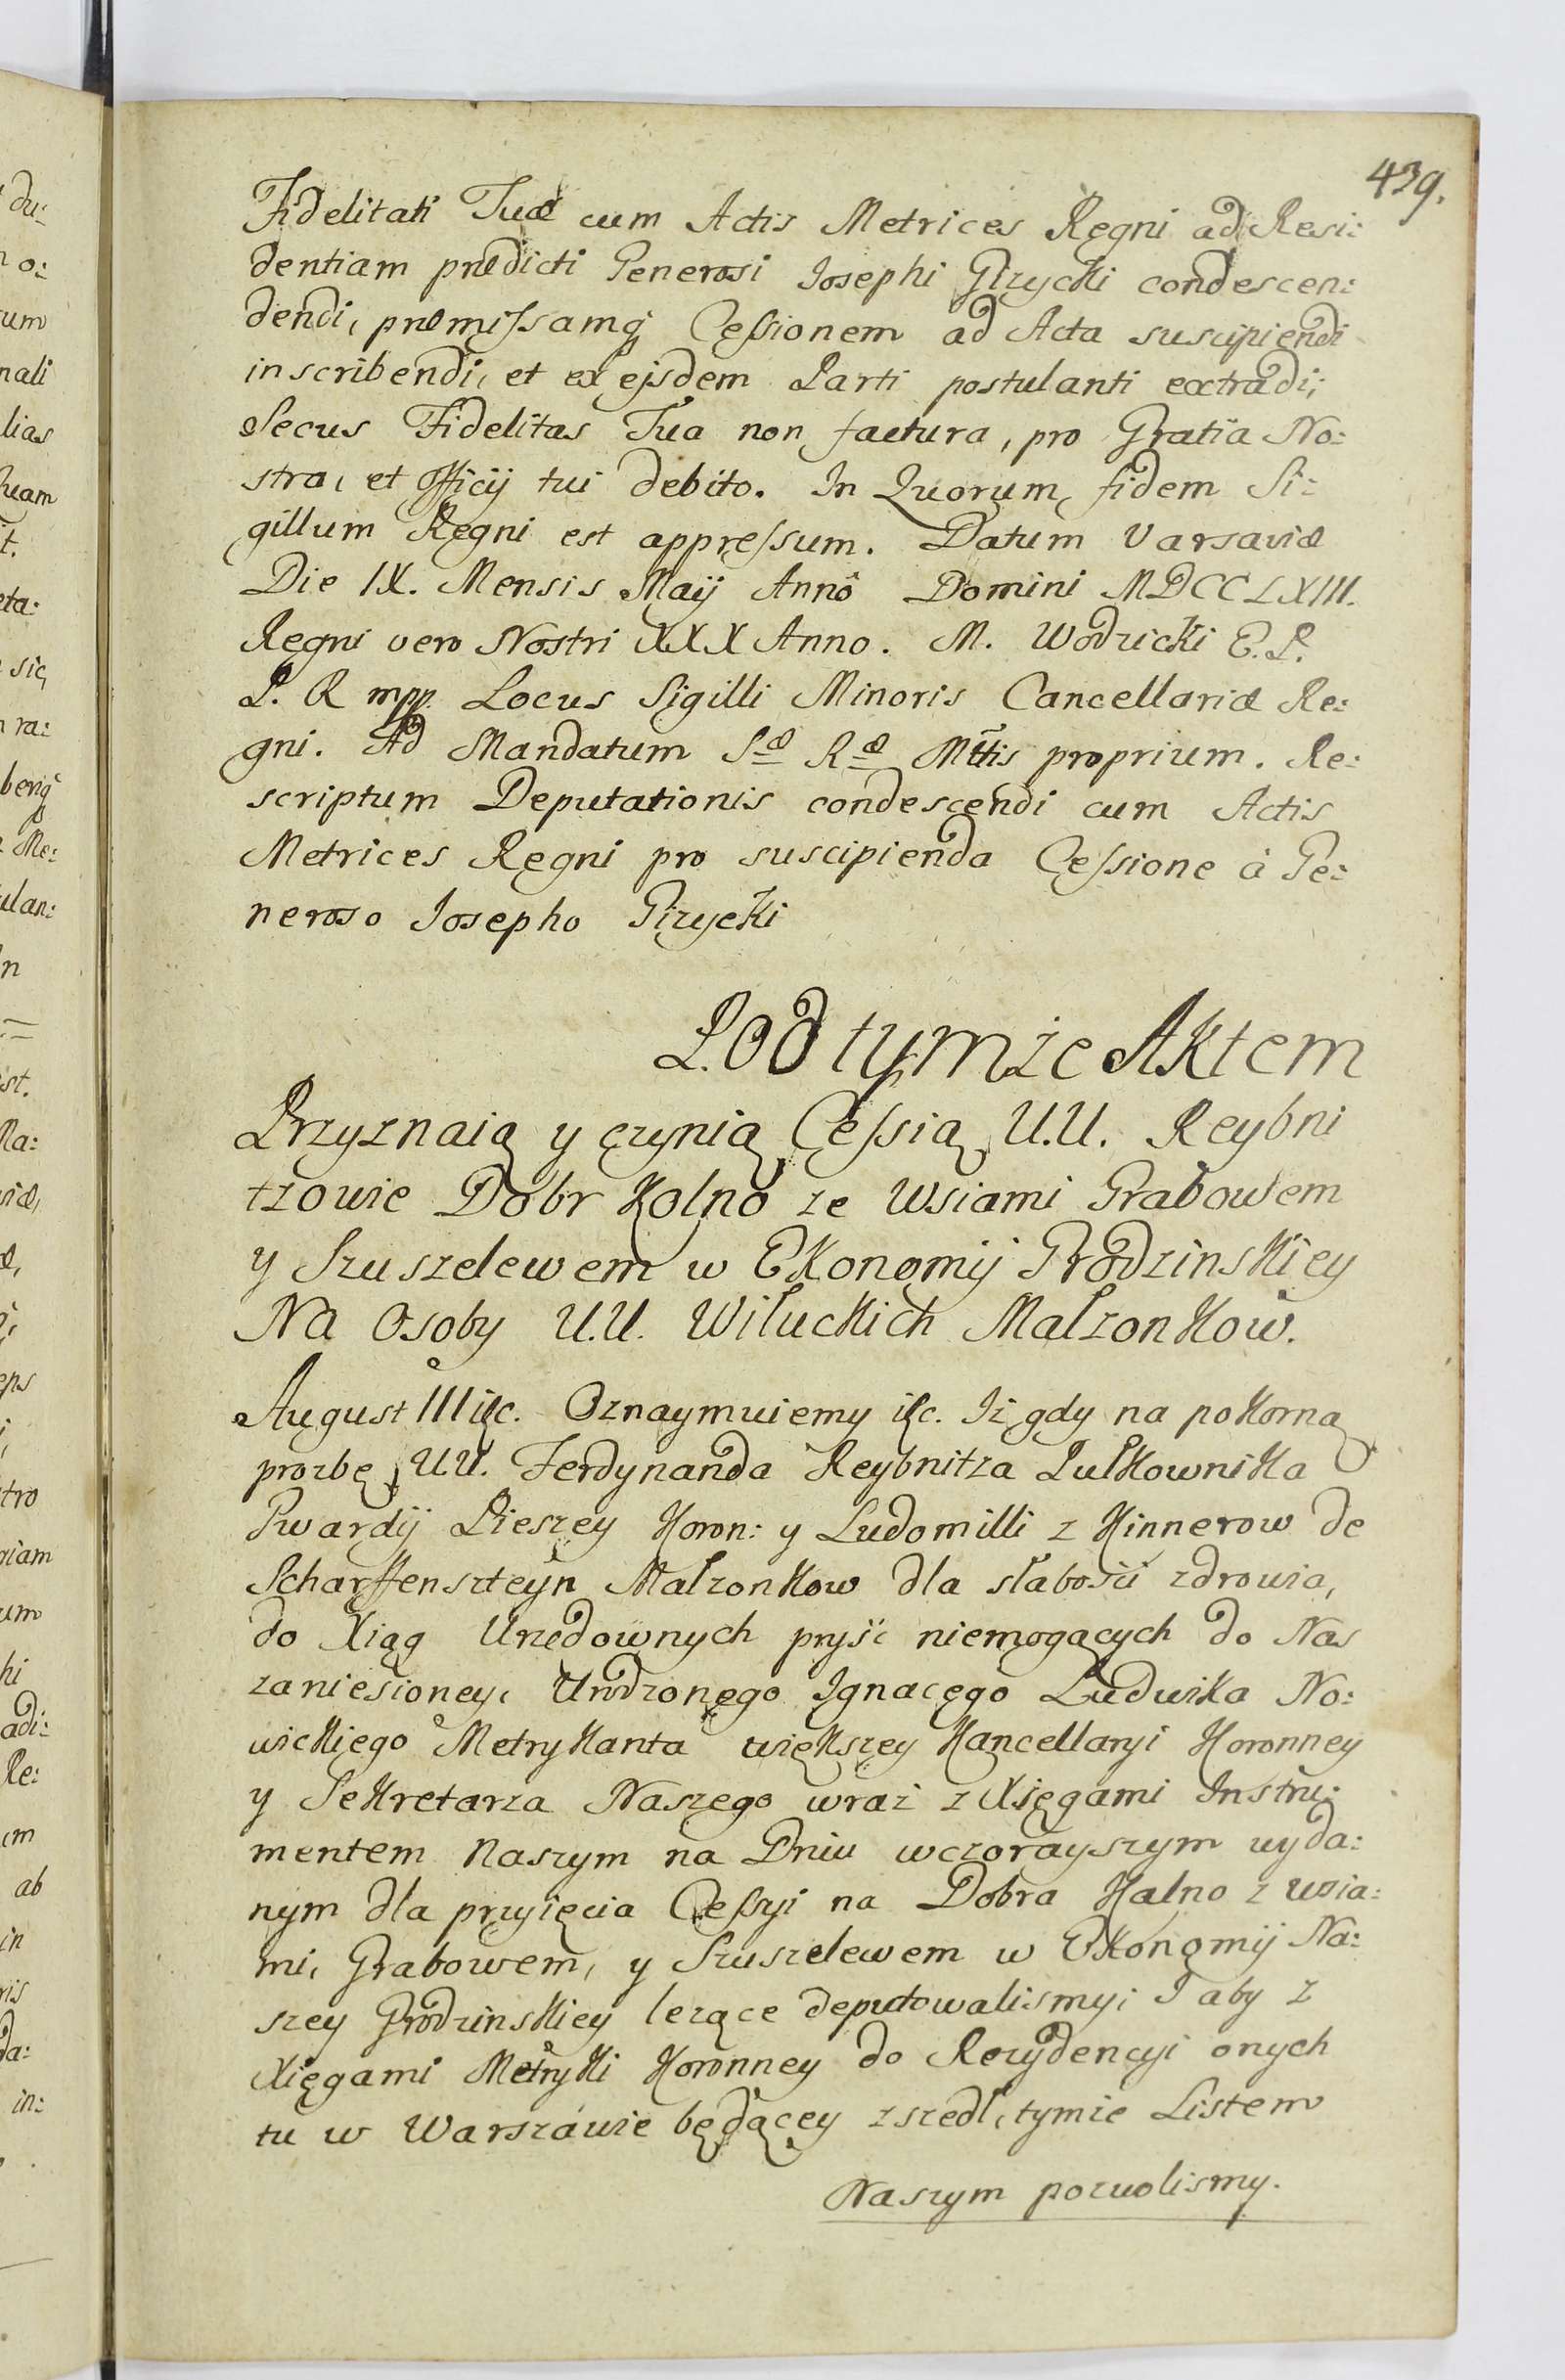 439.
Fidelitati Tuæ cum Actis Metrices Regni ad Resi:
dentiam prædicti Generosi Josephi Giżycki condescen:
dendi, præmissamq; Cessionem ad Acta suscipiendi
inscribendi, et ex ejsdem Parti postulanti extradi;
Secus Fidelitas Tua non factura, pro Gratia No:
stra, et Officij tui debito. In Quorum fidem Si:
gillum Regni est appressum. Datum Varsaviæ
Die IX. Mensis Maij Annô Domini MDCCLXIII.
Regni vero Nostri XXX Anno. M. Wodzicki E. P.
P. R mpp. Locus Sigilli Minoris Cancellariæ Re:
gni. Ad Mandatum Sæ Ræ Mttis proprium. Re:
scriptum Deputationis condescendi cum Actis
Metrices Regni pro suscipienda Cessione à Ge:
neroso Josepho Giżycki
Pod tymże Aktem
Przyznaią y czynią Cessią U.U. Reybni
tzowie Dobr Kolno ze Wsiami Grabowem
y Szuszelewem w Ekonomij Grodzinskiey
Na Osoby U.U. Wiłuckich Małzonkow.
August III &c. Oznaymuiemy &c. Iż gdy na pokorną
prozbę U.U. Ferdynanda Reybnitza Pułkownika
Gwardij Pieszey Koron: y Ludomilli z Hinnerow de
Scharffenszteyn Małzonkow dla słabości zdrowia,
do Xiąg Urzędownych pryść niemogących do Nas
zaniesioney, Urodzonego Ignacego Ludwika No:
wickiego Metrykanta większey Kancellaryi Koronney
y Sekretarza Naszego wraz z Xięgami Instru:
mentem Naszym na Dniu wczorayszym wyda:
nym dla przyięcia Cessyi na Dobra Kalno z wsia:
mi, Grabowem, y Szuszelewem w Ekonomij Na:
szey Grodzinskiey lezące deputowalismy; I aby z
Xięgami Metryki Koronney do Rezydencyi onych
tu w Warszawie będącey zszedł, tymże Listem
Naszym pozwolismy.